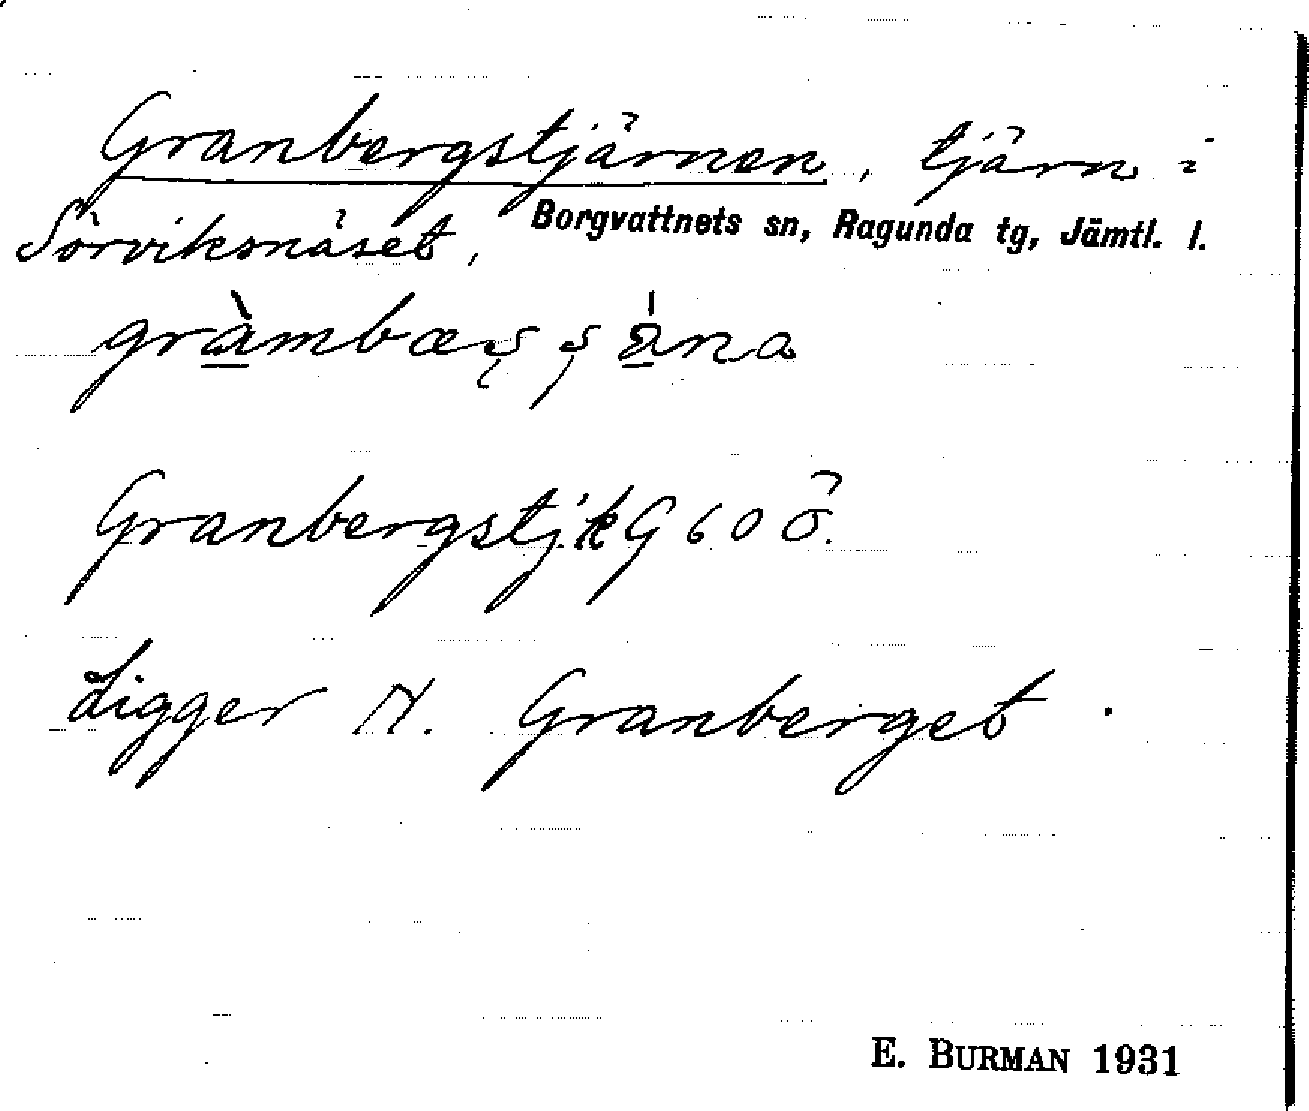 Granbergstjärnen, tjärn i
Sörviksnäset, Borgvattnets sn, Ragunda tg, Jämtl. l.
Granbergstj. k G 60 Ö.
Ligger N. Granberget.
E. BURMAN 1931